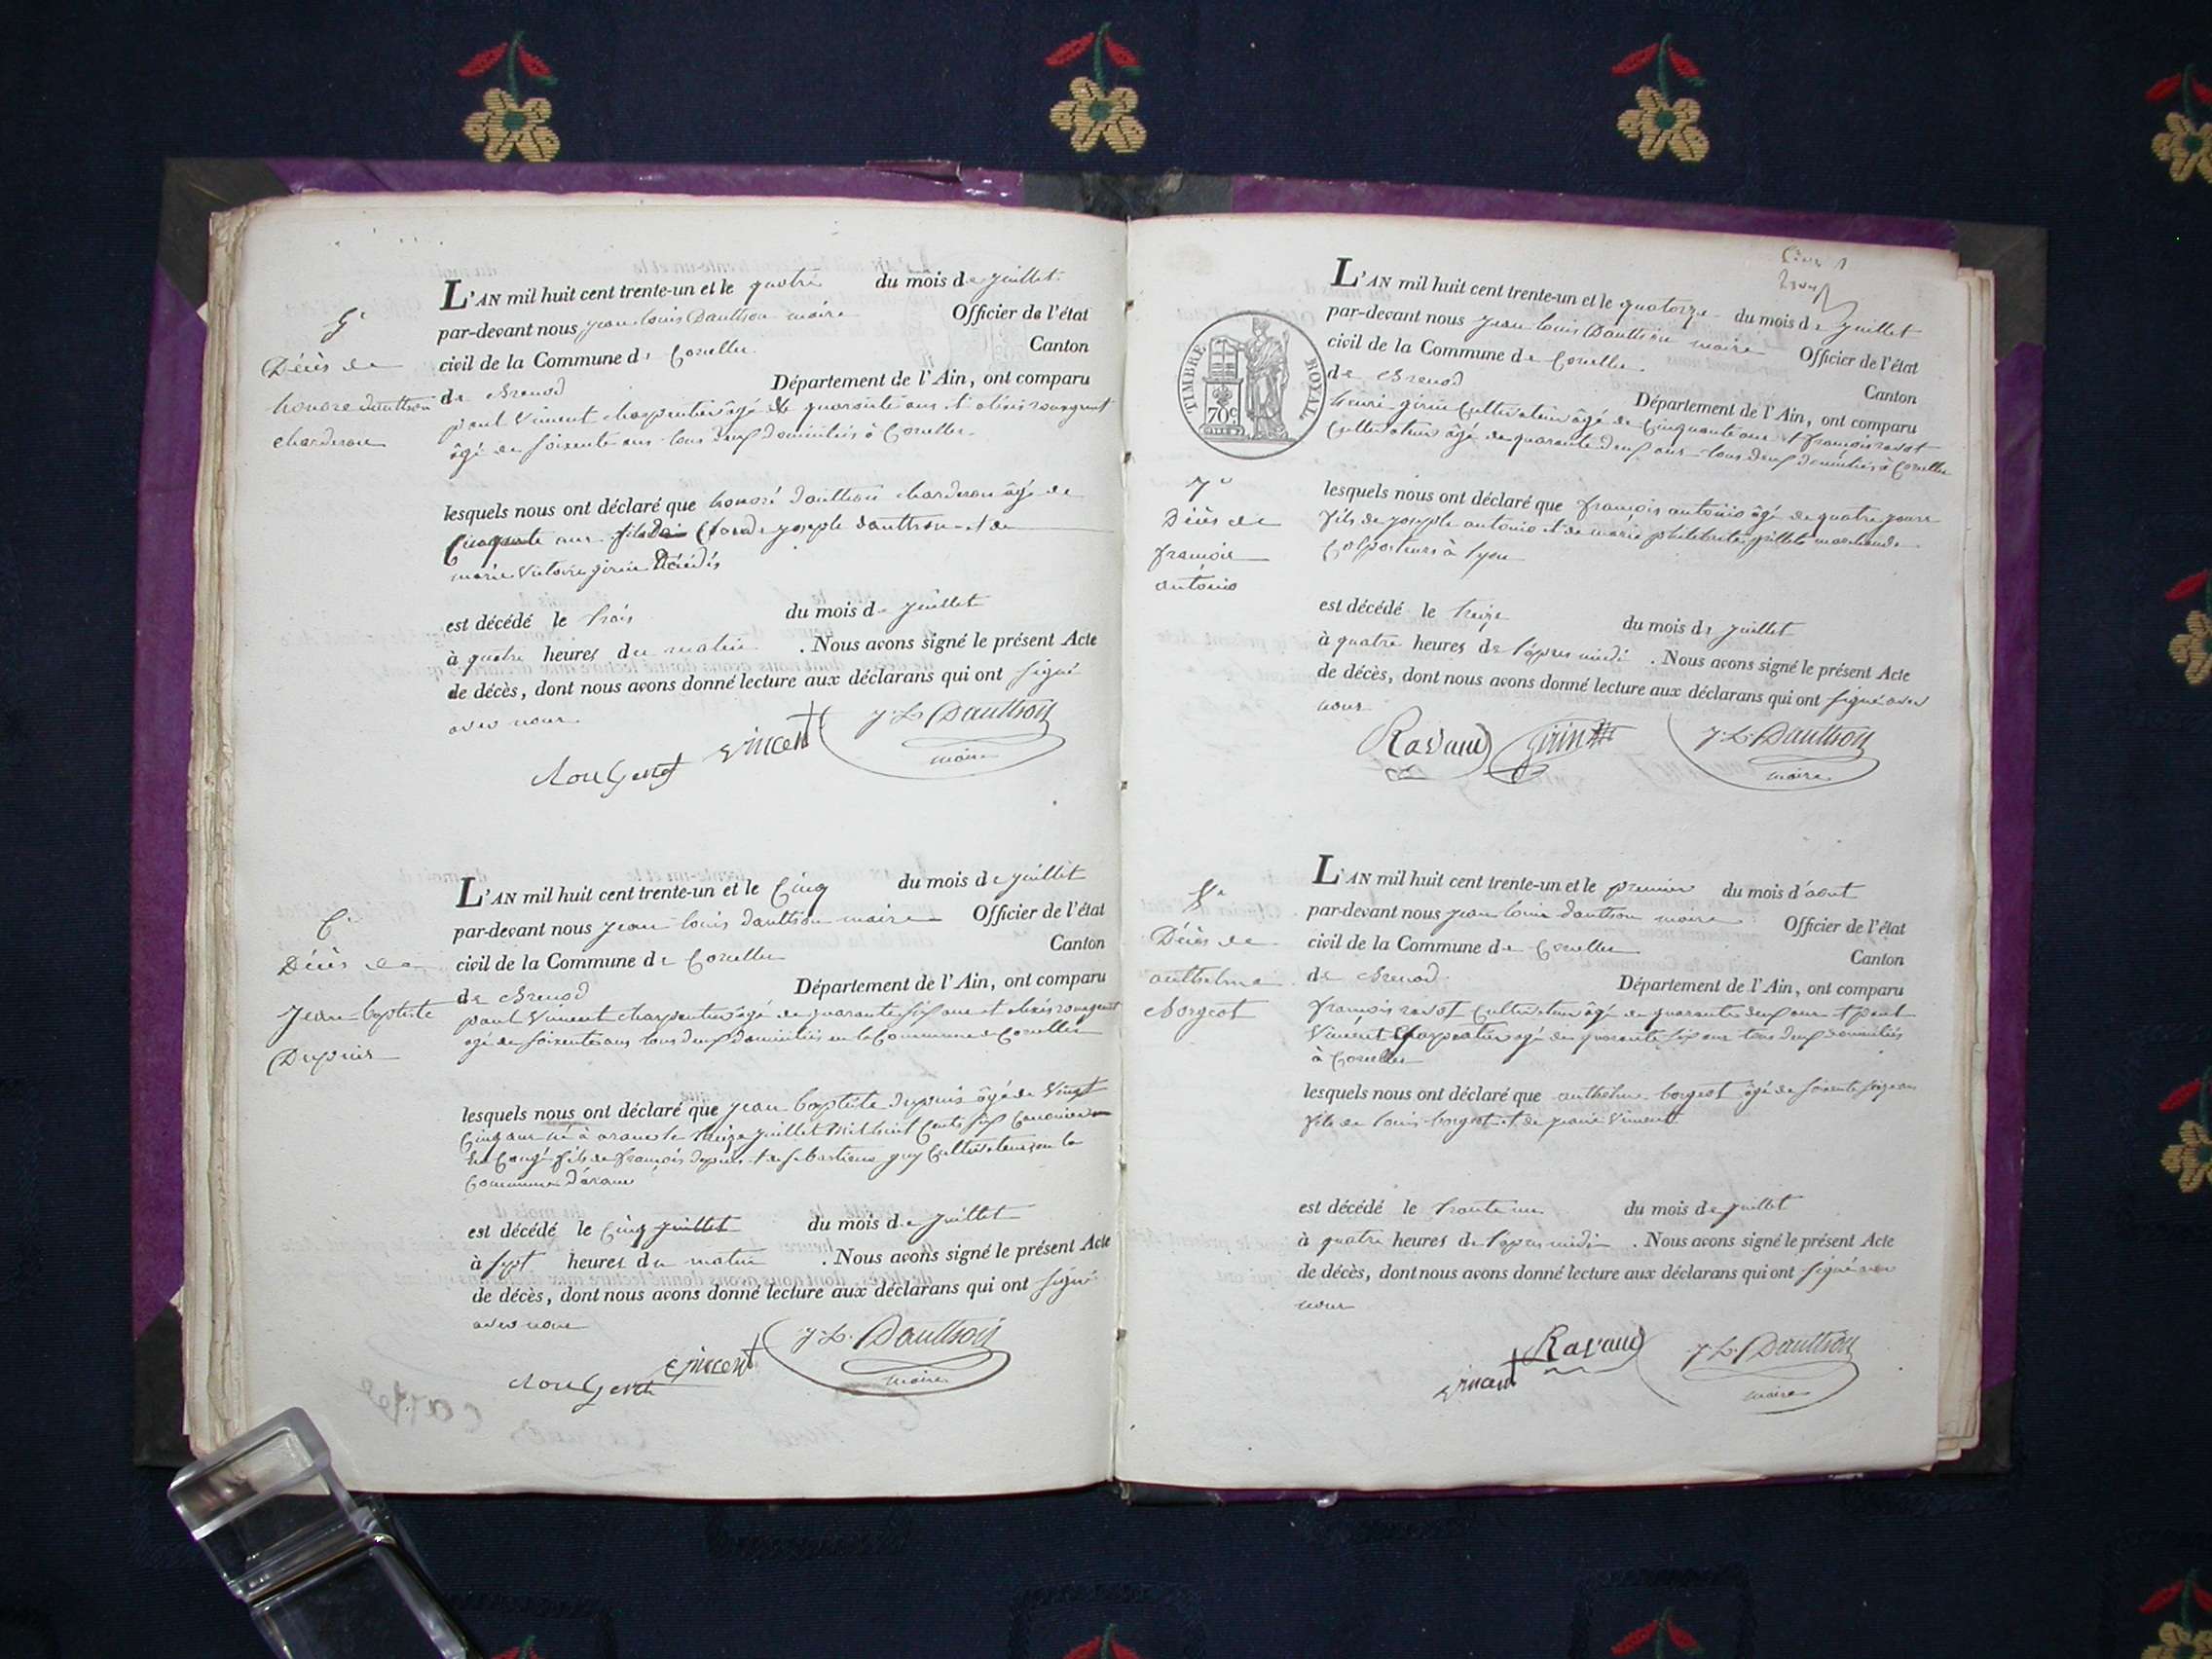 5e
Décès de
honoré dauthon
charderon
L'AN mil huit cent trente-un et le quatre du mois de juillet
par-devant nous jean louis Dauthon maire Officier de l'état
civil de la Commune de Corcelles Canton
de Brenod Département de l'Ain, ont comparu
paul Vincent charpentier âgé de quarante ans et aléxis rougemont
âgé de soixante ans tous deux domiciliés à Corcelles
lesquels nous ont déclaré que honoré dauthon charderon âgé de
Cinquante ans fils de joseph dauthon et de
marie Victoire girin Décédés
est décédé le trois du mois de juillet
à quatre heures du matin . Nous avons signé le présent Acte
de décès, dont nous avons donné lecture aux déclarans qui ont signé
avec nous
vincent J. L. Dauthon
maire
6e
Décès de
Jean baptiste
Dupuis
L'AN mil huit cent trente-un et le Cinq du mois de juillet
par-devant nous jean louis dauthon maire Officier de l'état
civil de la Commune de Corcelles Canton
de Brenod Département de l'Ain, ont comparu
paul Vincent charpentier âgé de quarante six ans et aléxis rougemont
âgé de soixante ans tous deux domiciliés en la Commune de Corcelles
lesquels nous ont déclaré que jean baptiste dupuis âgé de Vingt
Cinq ans né à aranc le treize juillet mil huit Cents six Canonier
En Congé fils de françois dupuis et de sebastiene guy Cultivateurs en la
Commune d'aranc
est décédé le Cinq juillet du mois de juillet
à sept heures du matin . Nous avons signé le présent Acte
de décès, dont nous avons donné lecture aux déclarans qui ont signé
avec nous
vincent J. L. Dauthon
maire
TIMBRE ROYAL
70c
7e
Décès de
françois
antonio
L'AN mil huit cent trente-un et le quatorze du mois de juillet
par-devant nous jean louis Dauthon maire Officier de l'état
civil de la Commune de Corcelles Canton
de Brenod Département de l'Ain, ont comparu
henri girin Cultivateur âgé de Cinquante ans et françois ravot
Cultivateur âgé de quarante deux ans tous deux domiciliés à Corcelles
lesquels nous ont déclaré que françois antonio âgé de quatre jours
fils de joseph antonio et de marie philiberte grillet marchands
Colporteurs à lyon
est décédé le treize du mois de juillet
à quatre heures de l'après midi . Nous avons signé le présent Acte
de décès, dont nous avons donné lecture aux déclarans qui ont signé avec
nous
Ravaud Girin J. L. Dauthon
maire
8e
Décès de
anthelme
Borgeot
L'AN mil huit cent trente-un et le premier du mois d'aout
par-devant nous jean louis dauthon maire Officier de l'état
civil de la Commune de Corcelles Canton
de Brenod Département de l'Ain, ont comparu
françois ravot Cultivateur âgé de quarante deux ans et paul
Vincent Charpentier âgé de quarante six ans tous deux domiciliés
à Corcelles
lesquels nous ont déclaré que anthelme borgeot âgé de soixante seize ans
fils de louis borgeot et de Vincent
est décédé le trente un du mois de juillet
à quatre heures de l'après midi . Nous avons signé le présent Acte
de décès, dont nous avons donné lecture aux déclarans qui ont signé avec
nous
vincent Ravaud J. L. Dauthon
maire